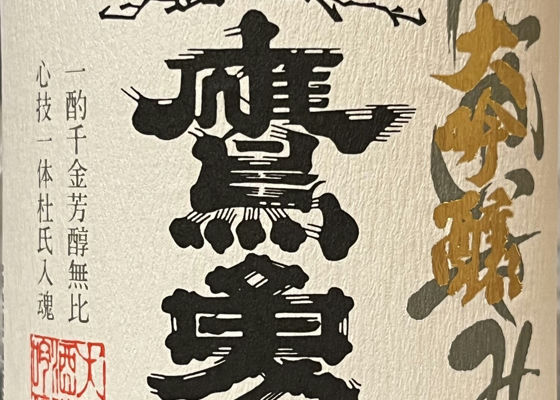 大吟醸
鷹勇
一酌千金芳醇無比
心技一体杜氏入魂